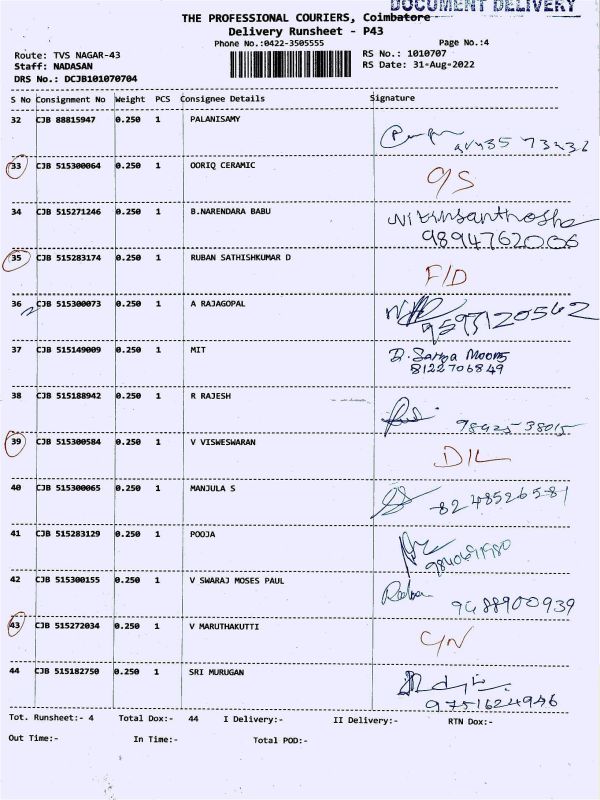 DOCUMENT DELIVERY
THE PROFESSIONAL COURIERS, Coimbatore
Delivery Runsheet - P43
Phone No.:0422-3505555 Page No.:4
Route: TVS NAGAR-43 RS No.: 1010707
Staff: NADASAN RS Date: 31-Aug-2022
DRS No.: DCJB101070704
S No Consignment No Weight PCS Consignee Details Signature
32 CJB 88815947 0.250 1 PALANISAMY
33 CJB 515300064 0.250 1 OORIQ CERAMIC
34 CJB 515271246 0.250 1 B.NARENDARA BABU
9894762006
35 CJB 515283174 0.250 1 RUBAN SATHISHKUMAR D
F/D
36 CJB 515300073 0.250 1 A RAJAGOPAL
9597120562
37 CJB 515149009 0.250 1 MIT
8122706849
38 CJB 515188942 0.250 1 R RAJESH
98425-38015
39 CJB 515300584 0.250 1 V VISWESWARAN
D/L
40 CJB 515300065 0.250 1 MANJULA S
8248526581
41 CJB 515283129 0.250 1 POOJA
42 CJB 515300155 0.250 1 V SWARAJ MOSES PAUL
9488900939
43 CJB 515272034 0.250 1 V MARUTHAKUTTI
44 CJB 515182750 0.250 1 SRI MURUGAN
9751624946
Tot. Runsheet:- 4 Total Dox:- 44 I Delivery:- II Delivery:- RTN Dox:-
Out Time:- In Time:- Total POD:-